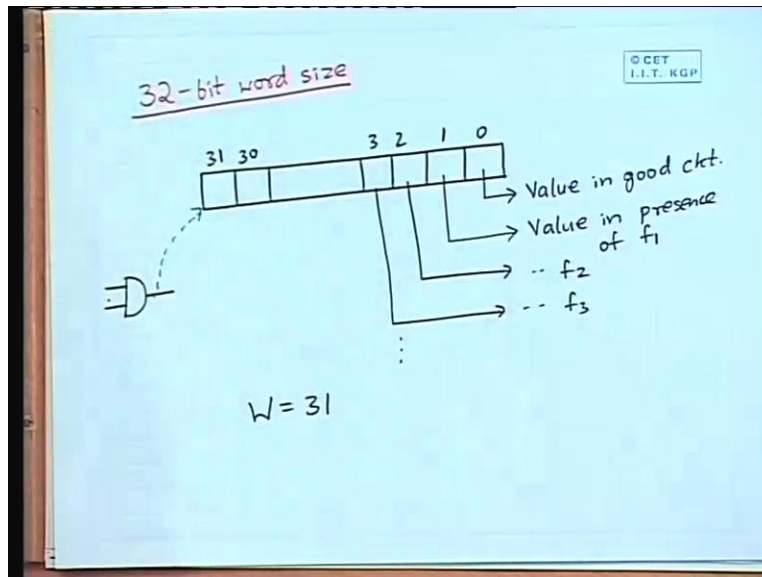 32-bit word size
© CET
I.I.T. KGP
31 30 3 2 1 0
Value in good ckt.
Value in presence
of f1
·· f2
·-- f3
W = 31